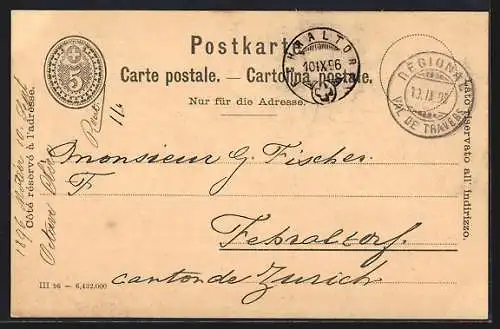 Postkarte.
Carte postale. — Cartolina postale.
Nur für die Adresse.
5
FEHRALTORF
10 IX 96
REGIONAL
10. IX 96
VAL DE TRAVERS
Côté réservé à l'adresse.
Lato riservato all' Indirizzo.
1896
10
Monsieur G. Fischer.
F
Fehraltorf.
canton de Zurich
III 96 — 6,432,000